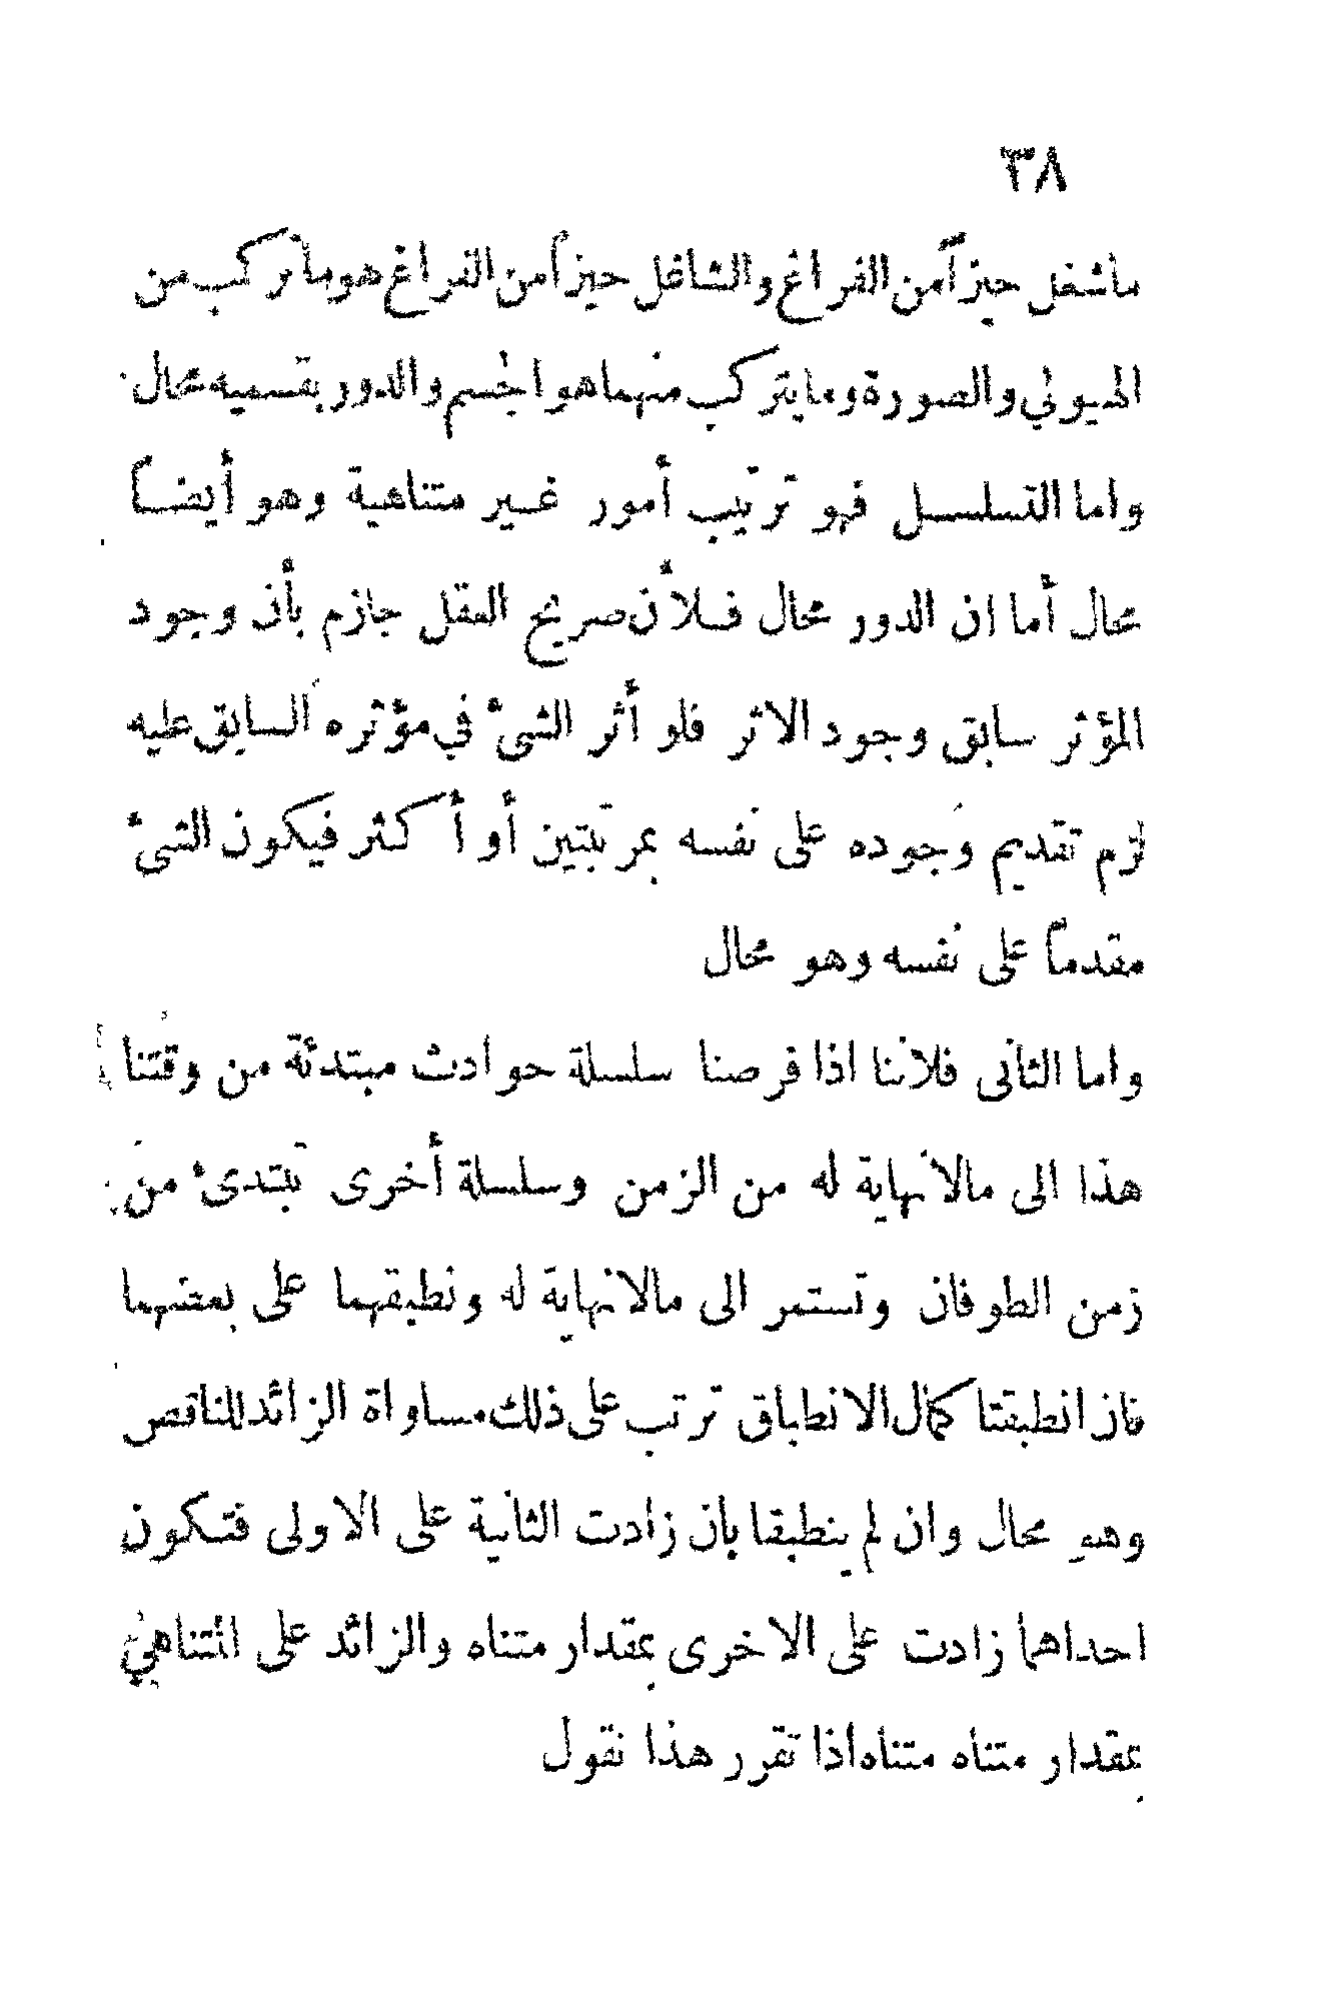 ٣٨
ماشغل حيزاً من الفراغ والشاغل حيزاً من الفراغ هو ماتركب من
الهيولي والصورة وما يتركب منهما هو الجسم والدور بقسميه محال
واما التسلسل فهو ترتيب أمور غير متناهية وهو أيضاً
محال أما ان الدور محال فلأن صريح العقل جازم بأن وجود
المؤثر سابق وجود الاثر فلو أثر الشىء في مؤثره السابق عليه
لزم تقديم وجوده على نفسه بمرتبتين أو أكثر فيكون الشىء
مقدماً على نفسه وهو محال
واما الثانى فلاننا اذا فرصنا سلسلة حوادث مبتدئة من وقتنا
هذا الى مالانهاية له من الزمن وسلسلة أخرى تبتدىء من
زمن الطوفان وتستمر الى مالانهاية له ونطبقهما على بعضهما
فان انطبقتا كمال الانطباق ترتب على ذلك مساواة الزائد للناقص
وهو محال وان لم ينطبقا بان زادت الثانية على الاولى فتكون
احداهما زادت على الاخرى بمقدار متناه والزائد على المتناهي
بمقدار متناه متناه اذا تقرر هذا نقول